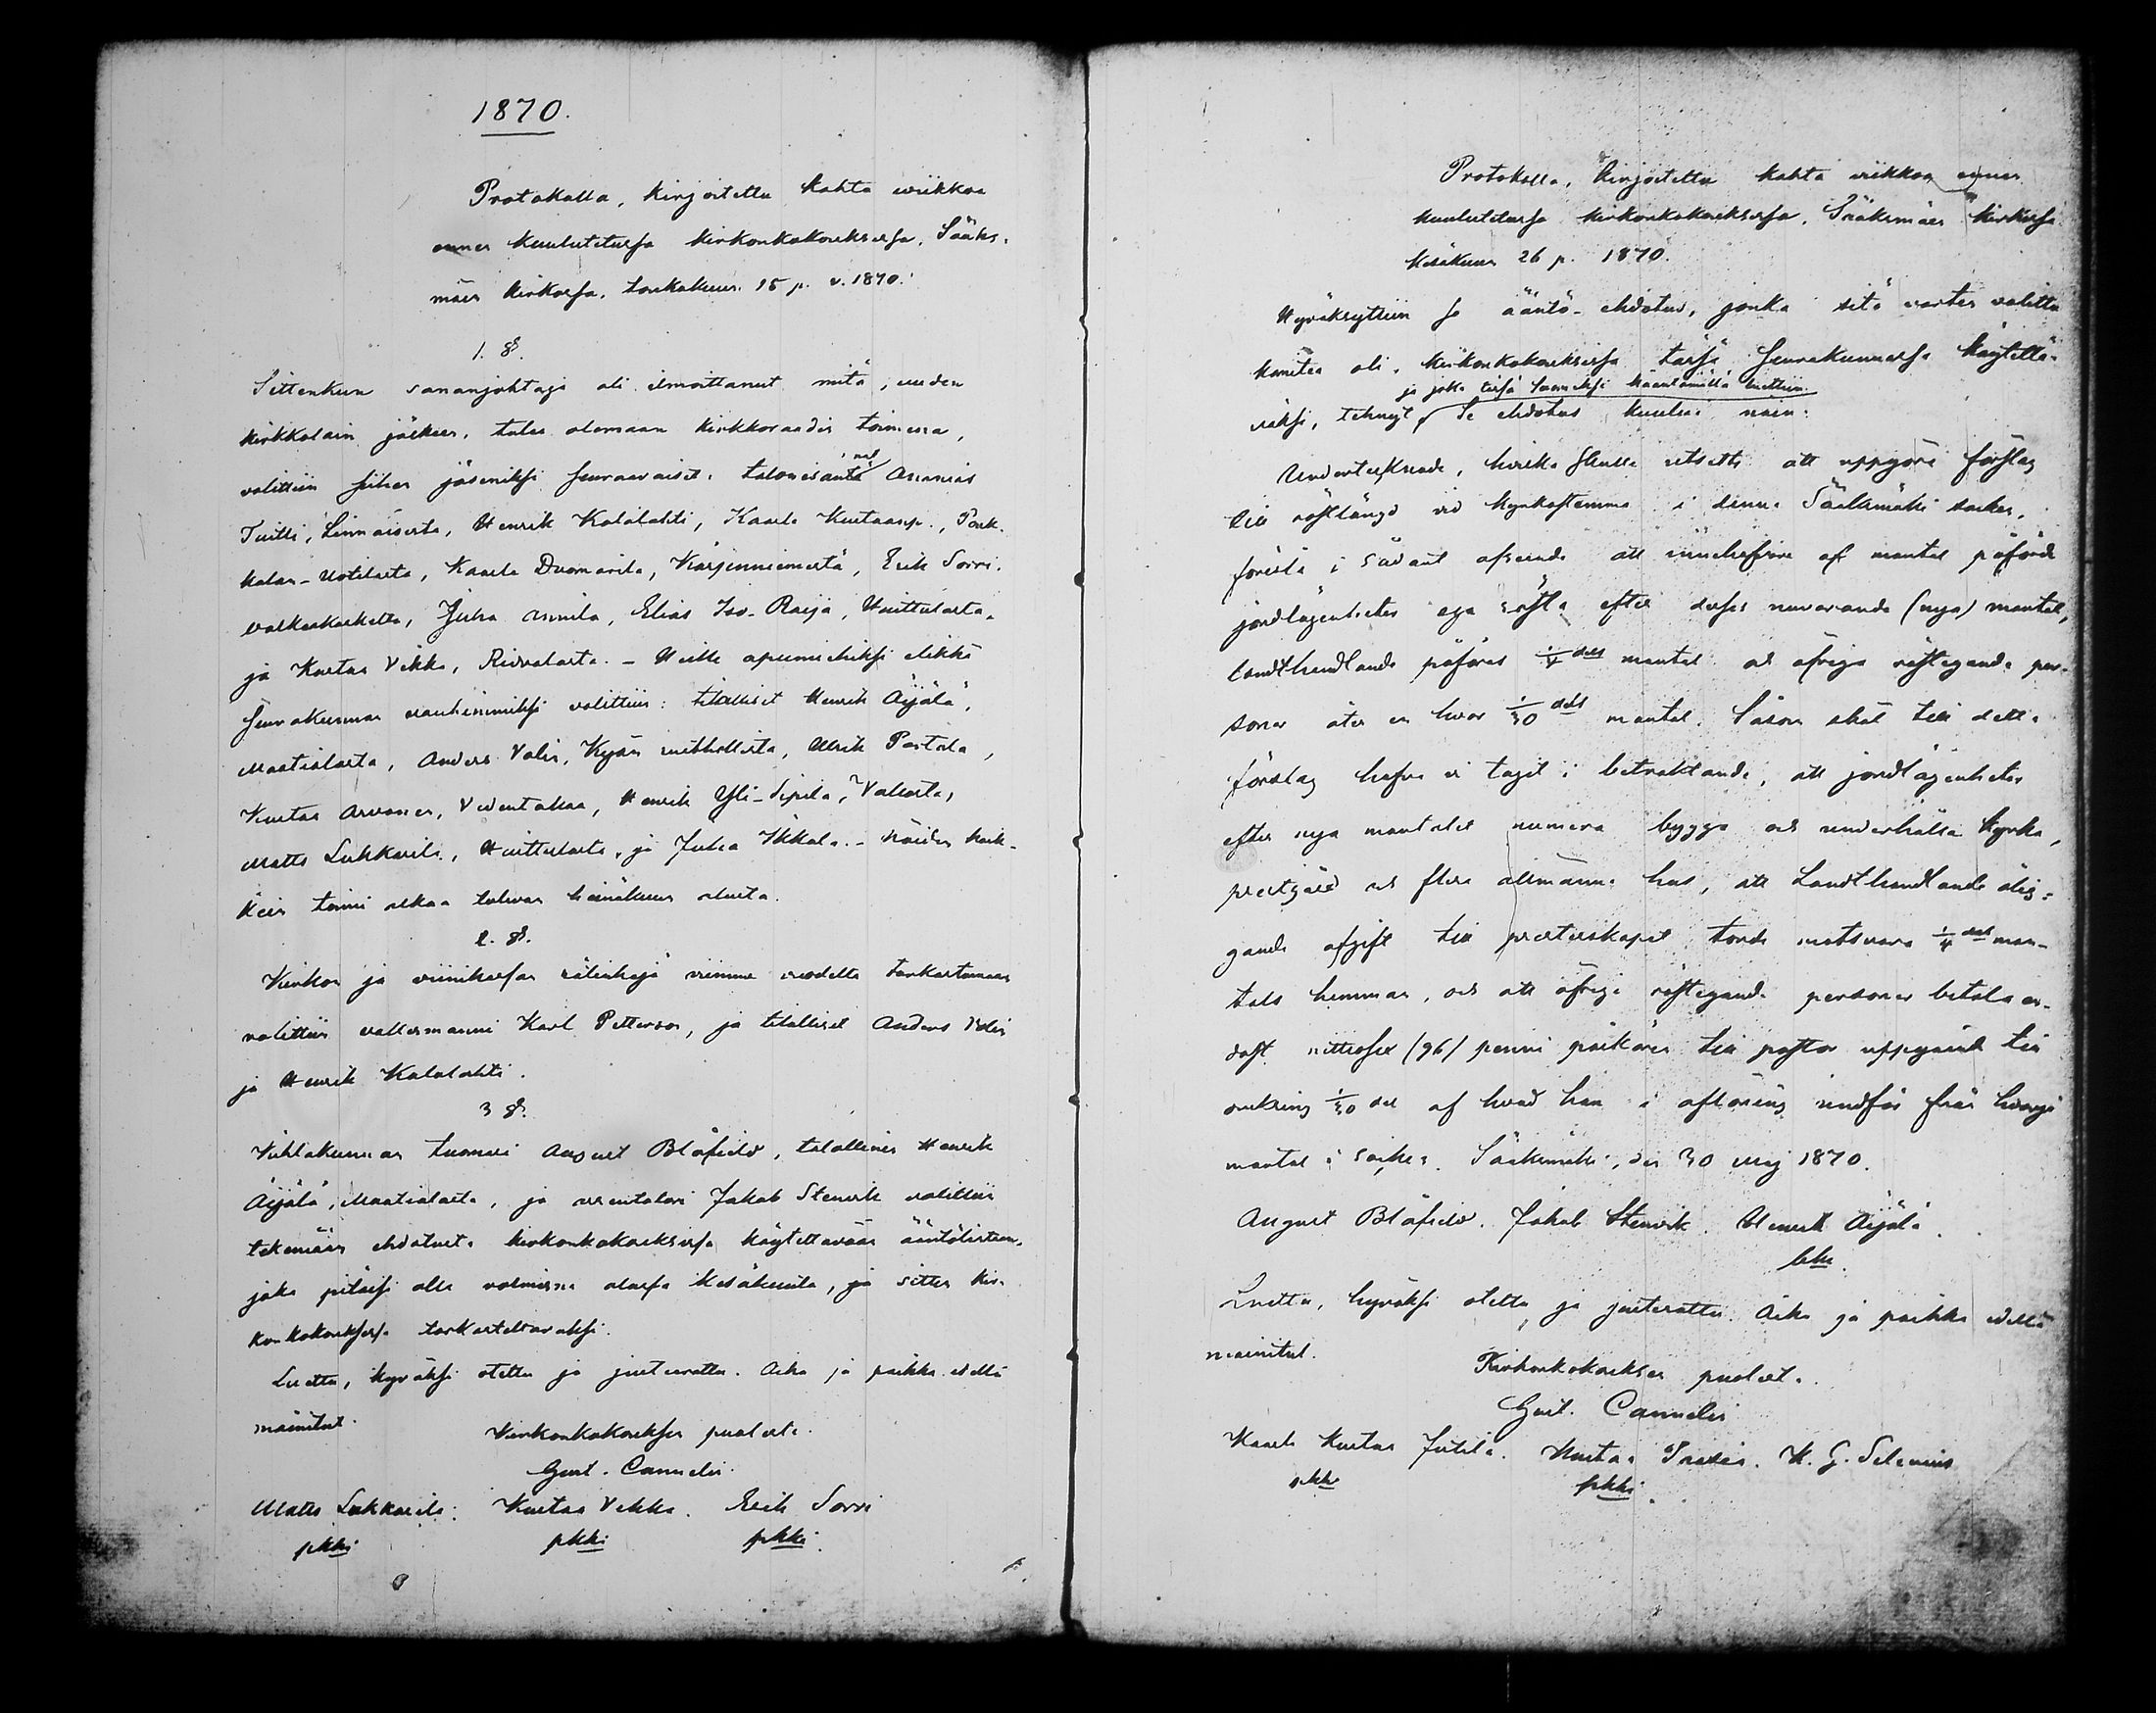 1870.
Protokolla, kirjoitettu kahta wiikkoa
ennen kuulutetussa kirkonkokouksessa, Sääks-
mäen kirkossa, toukokuun 15 p. v. 1870.
1. §.
Sittenkun sananjohtaja oli ilmoittanut mitä, uuden
kirkkolain jälkeen, tulee olemaan kirkkoraadin toimena,
valittiin siihen jäseniksi seuraavaiset: talonisännät Ananias
Tuitti, Linnaisista, Henrik Kalalahti, Kaarle Kustaanp.,
kalan-Uotilasta, Kaarle Duomarila, Kärjenniemestä, Erik Sorri,
Juha Annila, Elias Iso-Raija, Huittulasta,
ja Kustaa Vekka, Ridvalasta. – Heille apumiehiksi elikkä
seurakunnan vanhimmiksi valittiin: tilalliset Henrik Äijälä,
Maatialasta, Anders Valin, Henrik Partala,
Kustaa Arvonen, Henrik Yli-Sipilä,
Matts Lukkarila, Huittulasta, ja Juha Ikkala. – Näiden kaik-
kein toimi alkaa tulevan heinäkuun alusta.
2. §.
Kirkon ja viinikassan tilinteko viime vuodelta tarkastamaan
valittiin vallesmanni Karl Petterson, ja tilalliset Anders Valin
ja Henrik Kalalahti.
3 §.
Kihlakunnan tuomari August Blåfield, talollinen Henrik
Äijälä, Maatialasta, ja Jakob Stenvik valittiin
tekemään ehdotusta kirkonkokouksessa käytettävään ääntölistaan,
joka pitäisi olla valmiina alussa kesäkuuta, ja sitten kir-
konkokouksessa tarkastettavaksi.
Luettu, hyväksi otettu ja justeerattu. Aika ja paikka edellä
mainitut.
Kirkonkokouksen puolesta.
Gust. Cannelin.
Matts Lukkarila. Kustaa Vekka. Erik Sorri
pkki pkki pkki.
Protokolla, kirjoitettu kahta wiikkoa ennen
kuulutetussa kirkonkokouksessa, Sääksmäen kirkossa
kesäkuun 26 p. 1870.
Hyväksyttiin se ääntö-ehdotus, jonka sitä varten valittu
komitea oli, kirkonkokouksissa tässä seurakunnassa käytettä-
ja joka tässä Suomeksi käändämällä luettiin.
väksi, tehnyt. Se ehdotus kuului näin:
Undertecknade, hvilka blifvit utsedde att uppgöra förslag
till röstlängd vid kyrkostemma i denna Sääksmäki socken,
föreslå i sådant afseende att innehafvare af mantal påförde
jordlägenheter ega rösta efter dessas nuvarande (nya) mantal,
landthandlande påföres 1/4 dels mantal och öfriga röstegande per-
soner åter en hvar 1/30 dels mantal. Såsom skäl till detta
förslag hafva vi tagit i betraktande, att jordlägenheter
efter nya mantalet numera bygga och underhålla kyrka,
prestgård och flera allmänna hus, att Landthandlande ålig-
gande afgift till presterskapet torde motsvara 1/4 dels man-
tals hemman, och att öfriga röstegande personer betala en-
dast nittiosex (96) penni till pastor uppgående till
omkring 1/30 del af hvad han i aflöning undfår från hvarje
mantal i socken. Sääksmäki, den 30 Maj 1870.
August Blåfield. Jakob Stenvik. Henrik Äijälä.
Luettu, hyväksi otettu ja justerattu. Aika ja paikka edellä
mainitut.
Kirkonkokouksen puolesta.
Gust. Cannelin
Kaarle Kustaa Jutila. Kustaa K. G. Selenius
pkki pkki.